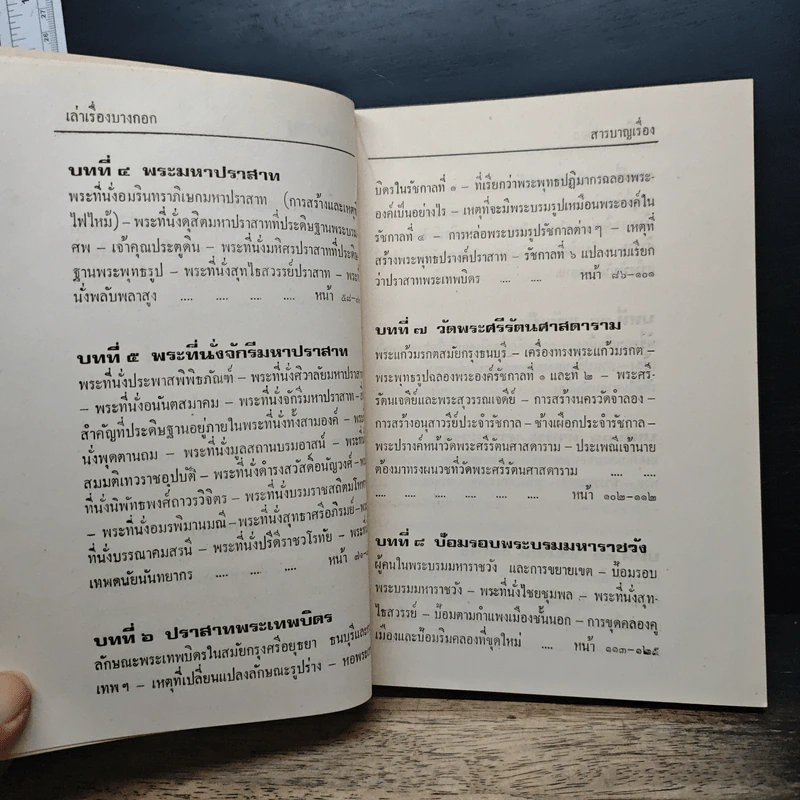 เล่าเรื่องบางกอก
บทที่ ๔ พระมหาปราสาท
พระที่นั่งอมรินทราภิเษกมหาปราสาท (การสร้างและเหตุที่
ไฟไหม้) – พระที่นั่งดุสิตมหาปราสาทที่ประดิษฐานพระบรม
ศพ – เจ้าคุณประตูดิน – พระที่นั่งมหิศรปราสาทที่ประดิษ
ฐานพระพุทธรูป – พระที่นั่งสุทไธสวรรย์ปราสาท –
นั่งพลับพลาสูง .... .... .... .... หน้า ๕๘–
บทที่ ๕ พระที่นั่งจักรีมหาปราสาท
พระที่นั่งประพาสพิพิธภัณฑ์ – พระที่นั่งศิวาลัยมหาปราสาท
พระที่นั่งอนันตสมาคม – พระที่นั่งจักรีมหาปราสาท –
สำคัญที่ประดิษฐานอยู่ภายในพระที่นั่งทั้งสามองค์ –
นั่งพุดตานถม – พระที่นั่งมูลสถานบรมอาสน์ –
สมมติเทวราชอุปบัติ – พระที่นั่งดำรงสวัสดิ์อนัญวงศ์ –
ที่นั่งนิพัทธพงศ์ถาวรวิจิตร – พระที่นั่งบรมราชสถิตมโหฬาร
– พระที่นั่งอมรพิมานมณี – พระที่นั่งสุทธาศรีอภิรมย์ –
ที่นั่งบรรณาคมสรนี – พระที่นั่งปรีดีราชวโรทัย –
เทพดนัยนันทยากร .... .... .... หน้า
บทที่ ๖ ปราสาทพระเทพบิตร
ลักษณะพระเทพบิตรในสมัยกรุงศรีอยุธยา ธนบุรีและ
เทพฯ – เหตุที่เปลี่ยนแปลงลักษณะรูปร่าง –
สารบาญเรื่อง
บิตรในรัชกาลที่ ๑ – ที่เรียกว่าพระพุทธปฏิมากรฉลองพระ-
องค์เป็นอย่างไร – เหตุที่จะมีพระบรมรูปเหมือนพระองค์ใน
รัชกาลที่ ๔ – การหล่อพระบรมรูปรัชกาลต่างๆ – เหตุที่
สร้างพระพุทธปรางค์ปราสาท – รัชกาลที่ ๖ แปลงนามเรียก
ว่าปราสาทพระเทพบิตร .... .... หน้า ๘๖–๑๐๑
บทที่ ๗ วัดพระศรีรัตนศาสดาราม
พระแก้วมรกตสมัยกรุงธนบุรี – เครื่องทรงพระแก้วมรกต –
พระพุทธรูปฉลองพระองค์รัชกาลที่ ๑ และที่ ๒ – พระศรี-
รัตนเจดีย์และพระสุวรรณเจดีย์ – การสร้างนครวัดจำลอง –
การสร้างอนุสาวรีย์ประจำรัชกาล – ช้างเผือกประจำรัชกาล –
พระปรางค์หน้าวัดพระศรีรัตนศาสดาราม – ประเพณีเจ้านาย
ต้องมาทรงผนวชที่วัดพระศรีรัตนศาสดาราม .... ....
.... .... .... .... .... .... หน้า ๑๐๒–๑๑๒
บทที่ ๘ ป้อมรอบพระบรมมหาราชวัง
ผู้คนในพระบรมมหาราชวัง และการขยายเขต – ป้อมรอบ
พระบรมมหาราชวัง – พระที่นั่งไชยชุมพล – พระที่นั่งสุท-
ไธสวรรย์ – ป้อมตามกำแพงเมืองชั้นนอก – การขุดคลองคู
เมืองและป้อมริมคลองที่ขุดใหม่ .... หน้า ๑๑๓–๑๒๕